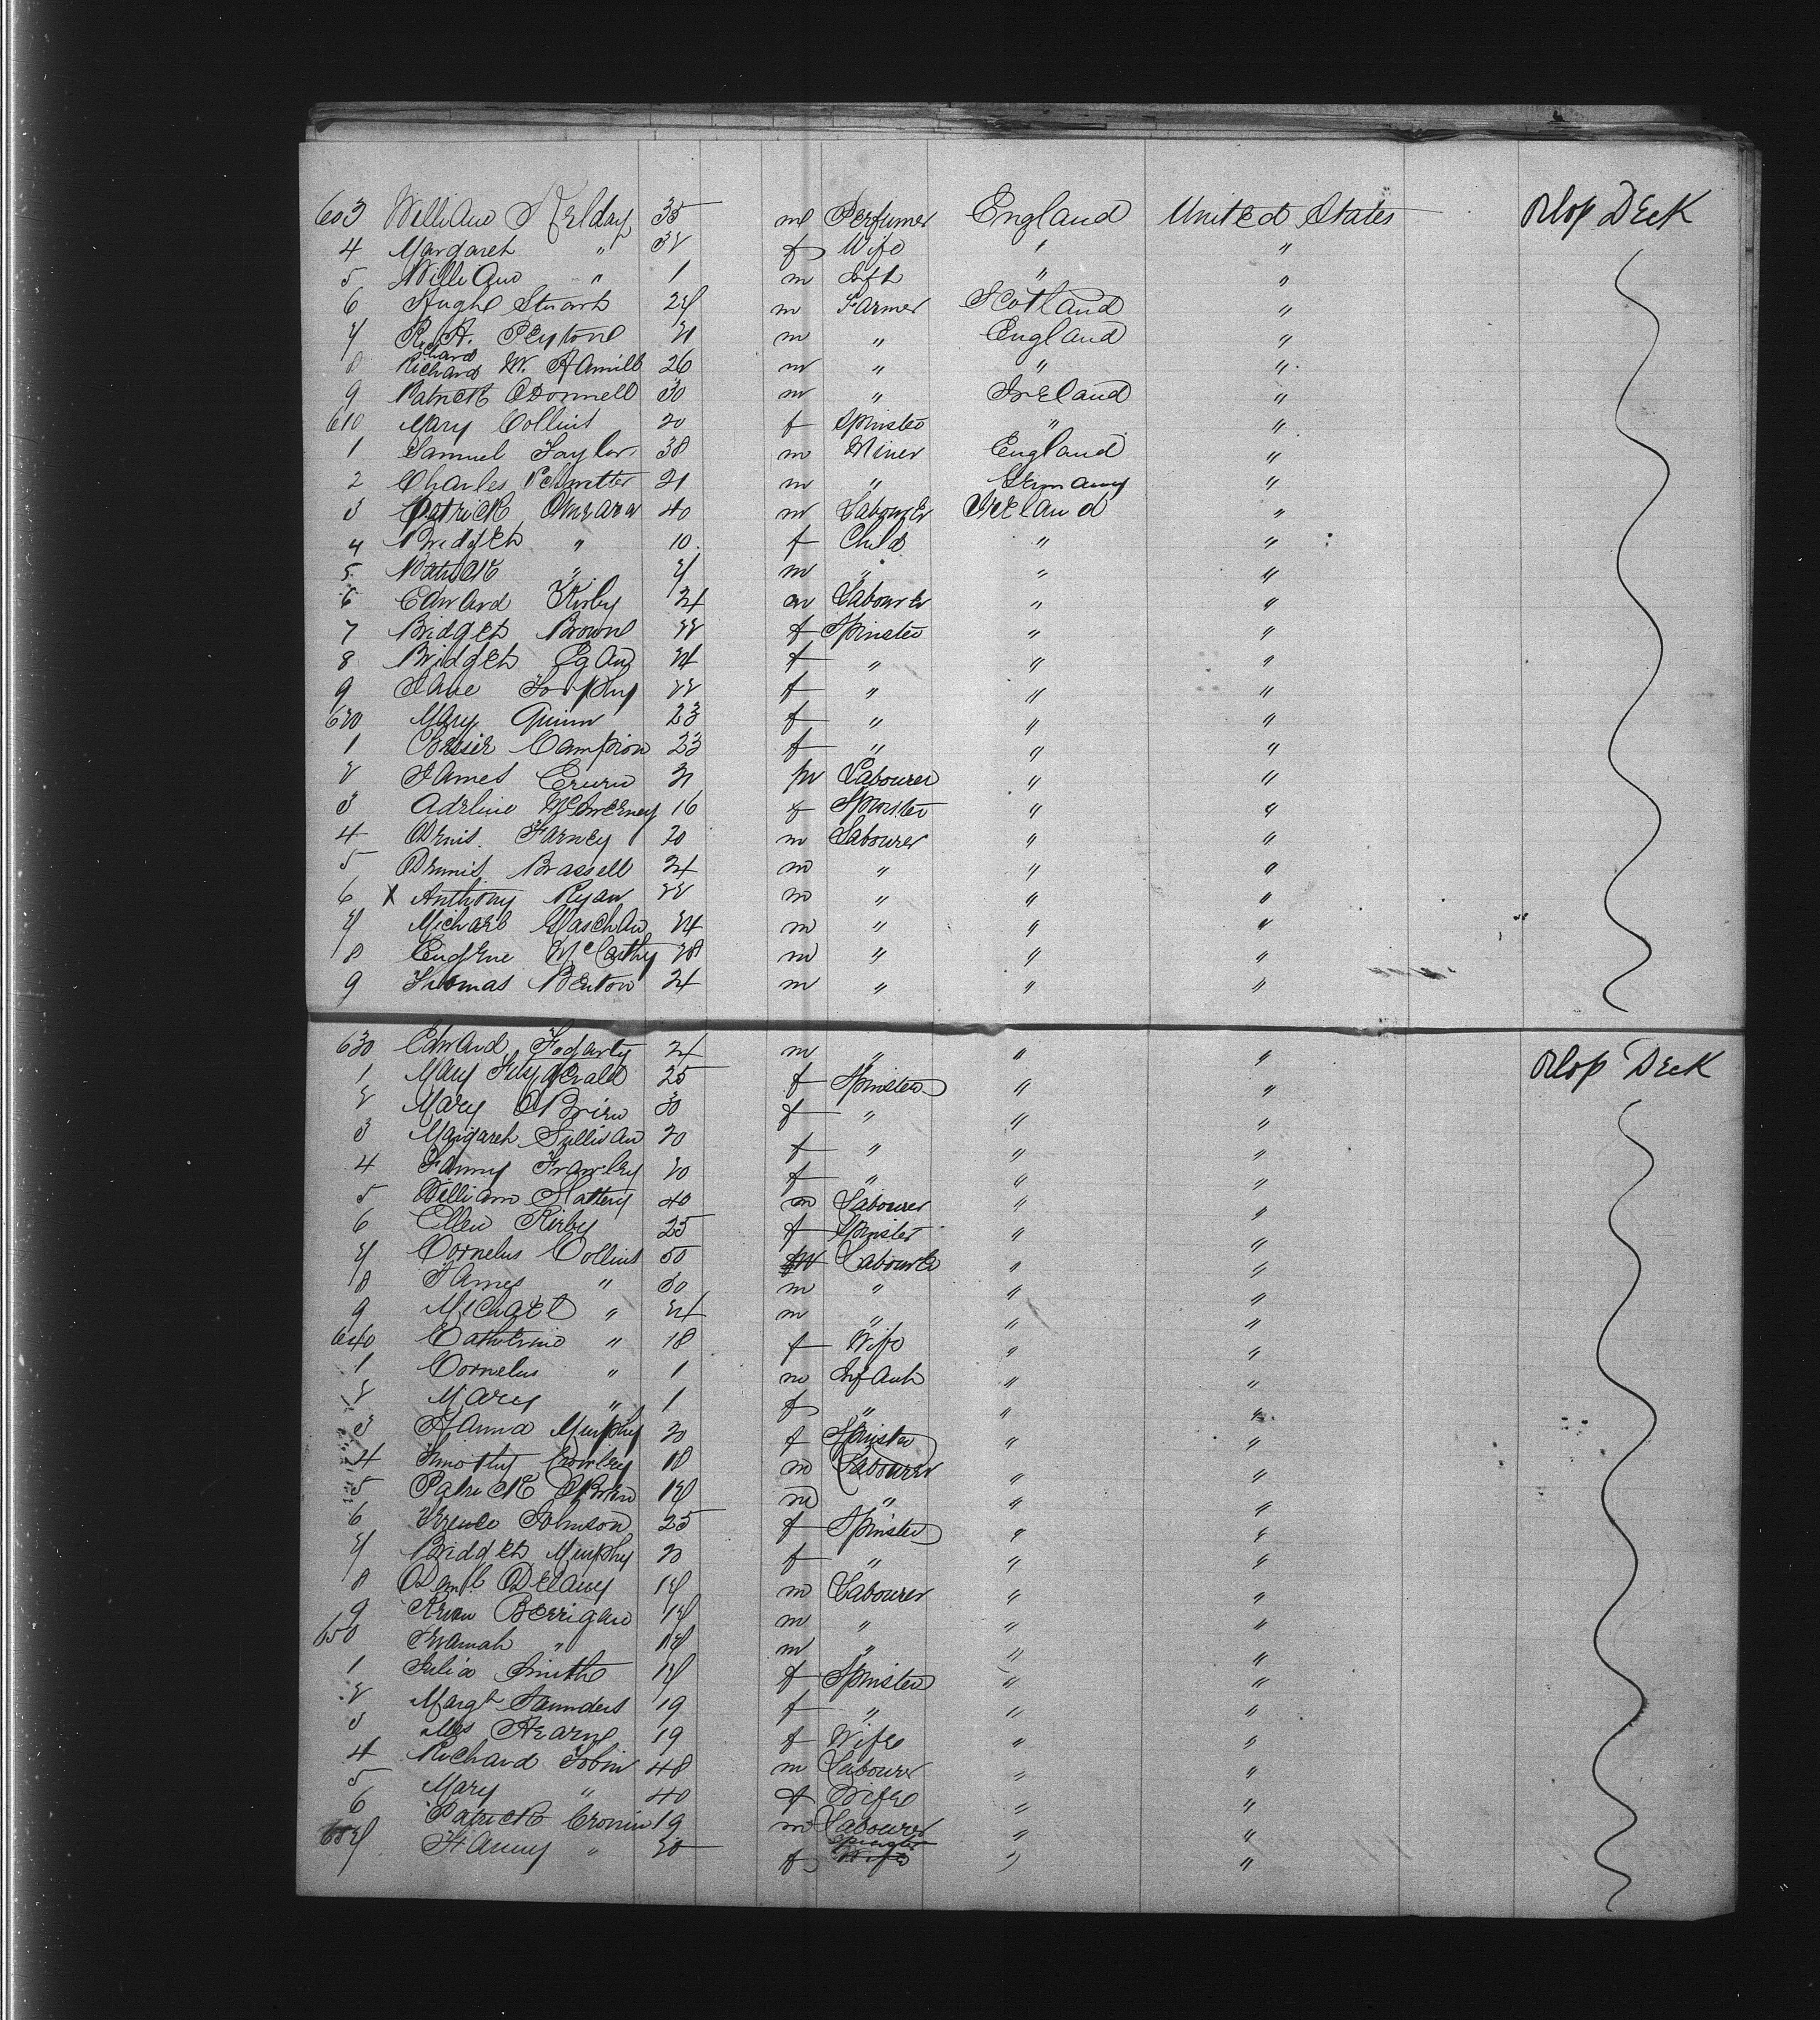 603 William Kelday 35 m Perfumer England United States Orlop Deck
4 Margaret " 32 f Wife " "
5 William " 1 m Inft " "
6 Hugh Stuart 27 m Farmer Scotland "
7 R. A. Peyton 21 m " England "
8 Richard W. Hamill 26 m " " "
9 Patrick ODonnell 30 m " Ireland "
610 Mary Collins 20 f Spinster " "
1 Samuel Taylor 38 m Miner England "
2 Charles 21 m " Germany "
3 Patrick Omeara 40 m Labourer Ireland "
4 Bridget " 10 f Child " "
5 Patrick " 7 m " " "
6 Edward Kirby 24 m Labourer " "
7 Bridget Brown 22 f Spinster " "
8 Bridget Egan 24 f " " "
9 Jane 22 f " " "
620 Mary Quinn 23 f " " "
1 Bessie Campion 23 f " " "
2 James 21 m Labourer " "
3 Adeline McInerney 16 f Spinster " "
4 Denis Farney 20 m Labourer " "
5 Dennis Brassell 24 m " " "
6 X Anthony Ryan 22 m " " "
7 Michael 24 m " " "
8 Eugene McCarthy 28 m " " "
9 Thomas Benton 24 m " " "
630 Edward Fogarty 24 m " " " Orlop Deck
1 Mary Fitzgerald 25 f Spinster " "
2 Mary OBrien 30 f " " "
3 Margaret Sullivan 20 f " " "
4 Fanny Frawley 20 f " " "
5 William Slattery 40 m Labourer " "
6 Ellen Kirby 25 f Spinster " "
7 Cornelus Collins 50 m Labourer " "
8 James " 30 m " " "
9 Michael " 24 m " " "
640 Catherine " 18 f Wife " "
1 Cornelus " 1 m Infant " "
2 Mary " 1 f " " "
3 Hanna Murphy 20 f Spinster " "
4 Timothy Crowley 18 m Labourer " "
5 Patrick OBrien 17 m " " "
6 Johnson 25 f Spinster " "
7 Bridget Murphy 20 f " " "
8 Danl Delany 17 m Labourer " "
9 Berrigan 17 m " " "
650 " 17 m " " "
1 Julia Smith 17 f Spinster " "
2 Margt Saunders 19 f " " "
3 Mrs Hearne 19 f Wife " "
4 Richard Tobin 48 m Labourer " "
5 Mary " 40 f Wife " "
6 Patrick Cronin 19 m Labourer " "
657 Fanny " 20 f Spinster Wife " "